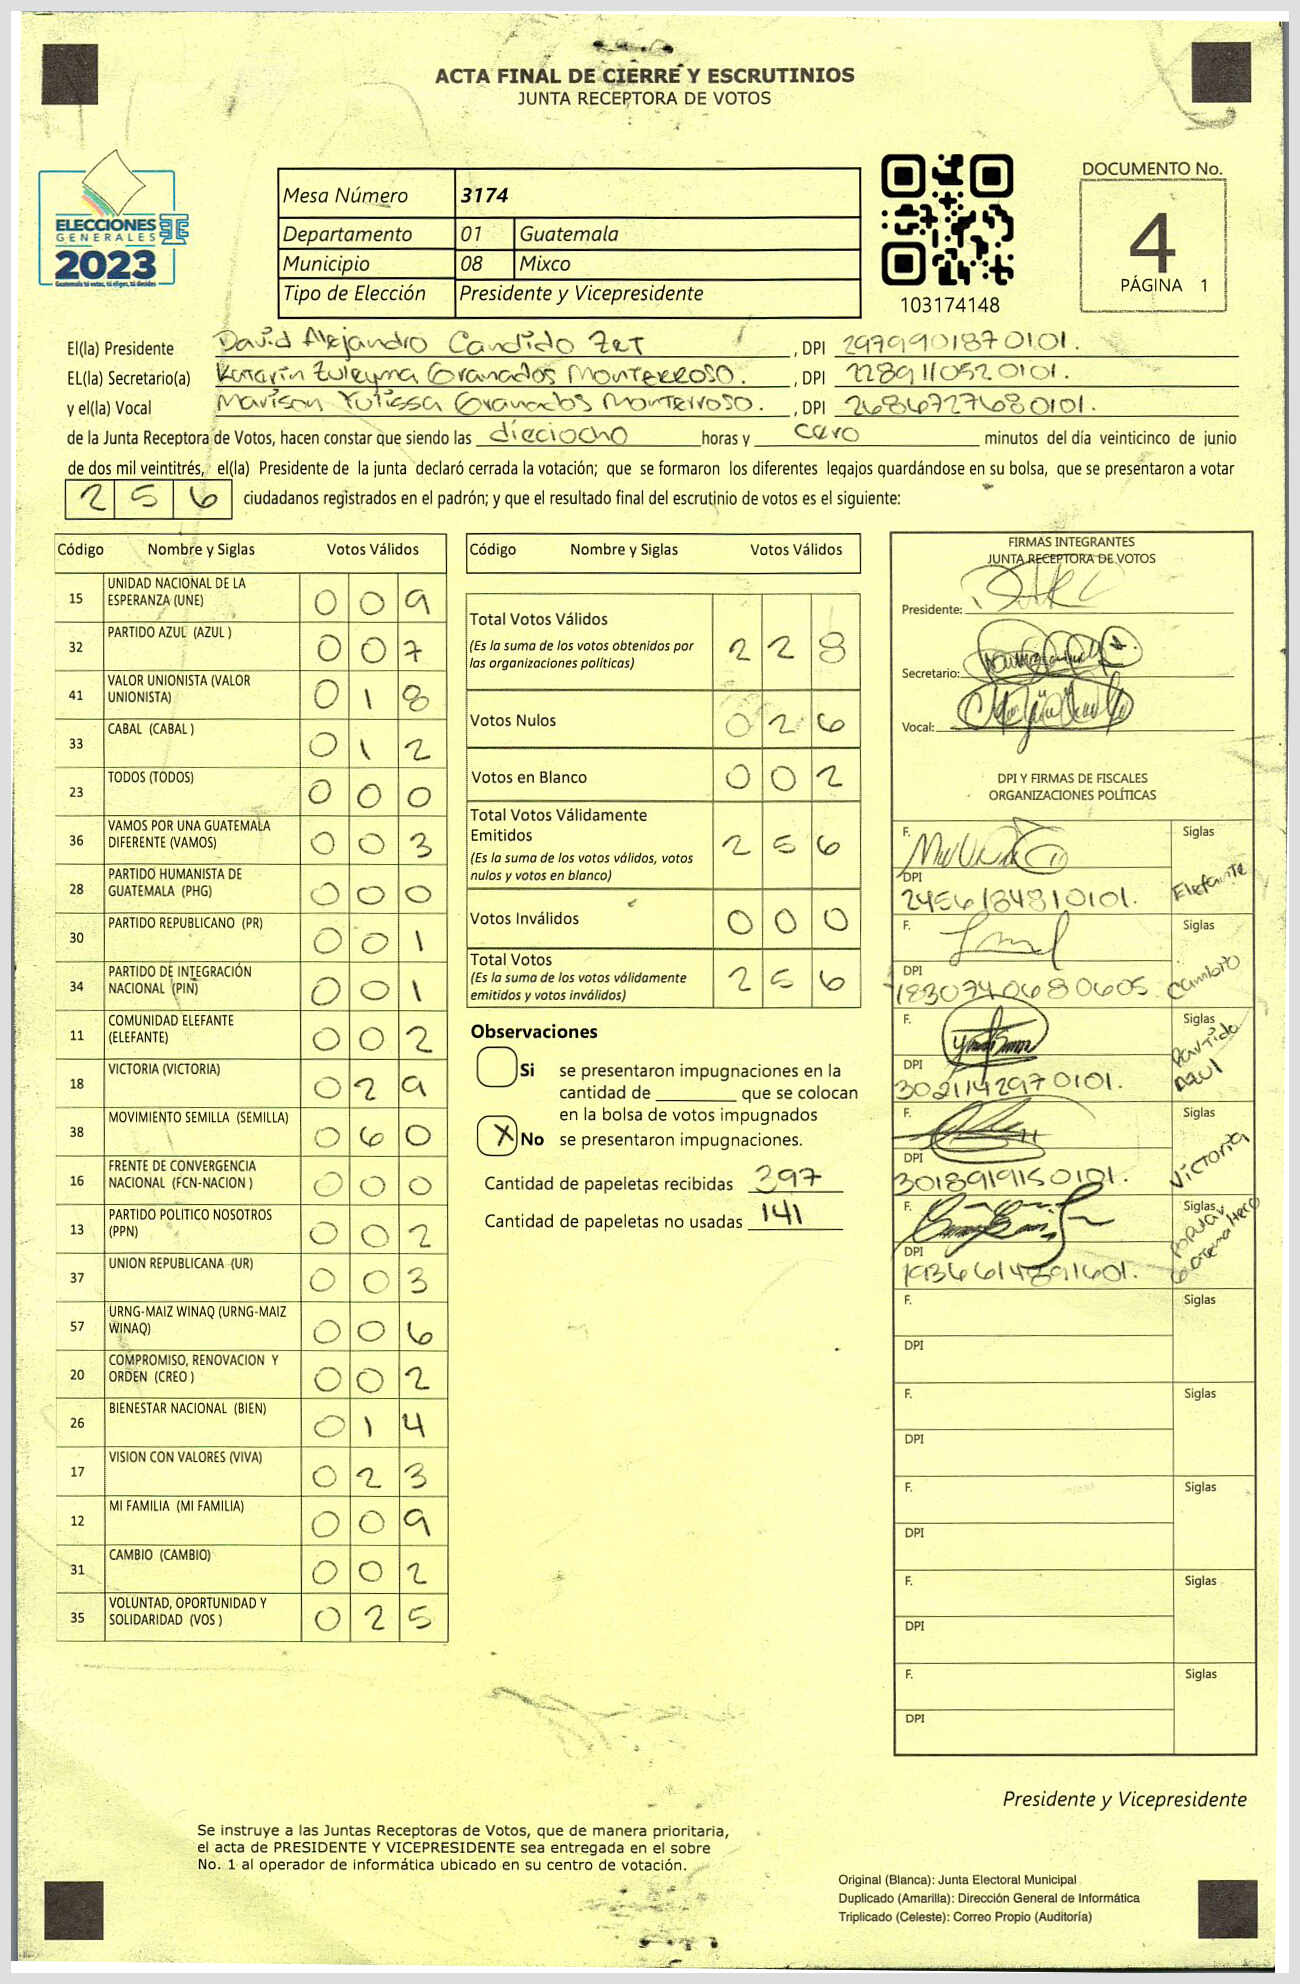 ACTA FINAL DE CIERRE Y ESCRUTINIOS
JUNTA RECEPTORA DE VOTOS
ELECCIONES
GENERALES
2023
Guatemala tú votas, tú eliges, tú decides
Mesa Número 3174
Departamento 01 Guatemala
Municipio 08 Mixco
Tipo de Elección Presidente y Vicepresidente
103174148
DOCUMENTO No.
4
PÁGINA 1
El(la) Presidente David Alejandro Candido Zet , DPI 2979901870101.
EL(la) Secretario(a) Katarin Zuleyma Granados Monterroso. , DPI 2289110520101.
y el(la) Vocal Marison Yulissa Granados Monterroso. , DPI 2686727680101.
de la Junta Receptora de Votos, hacen constar que siendo las dieciocho horas y cero minutos del día veinticinco de junio
de dos mil veintitrés, el(la) Presidente de la junta declaró cerrada la votación; que se formaron los diferentes legajos quardándose en su bolsa, que se presentaron a votar
2 5 6 ciudadanos registrados en el padrón; y que el resultado final del escrutinio de votos es el siguiente:
Código Nombre y Siglas Votos Válidos
15 UNIDAD NACIONAL DE LA
ESPERANZA (UNE) 0 0 9
32 PARTIDO AZUL (AZUL ) 0 0 7
41 VALOR UNIONISTA (VALOR
UNIONISTA) 0 1 8
33 CABAL (CABAL ) 0 1 2
23 TODOS (TODOS) 0 0 0
36 VAMOS POR UNA GUATEMALA
DIFERENTE (VAMOS) 0 0 3
28 PARTIDO HUMANISTA DE
GUATEMALA (PHG) 0 0 0
30 PARTIDO REPUBLICANO (PR) 0 0 1
34 PARTIDO DE INTEGRACIÓN
NACIONAL (PIN) 0 0 1
11 COMUNIDAD ELEFANTE
(ELEFANTE) 0 0 2
18 VICTORIA (VICTORIA) 0 2 9
38 MOVIMIENTO SEMILLA (SEMILLA) 0 6 0
16 FRENTE DE CONVERGENCIA
NACIONAL (FCN-NACION ) 0 0 0
13 PARTIDO POLITICO NOSOTROS
(PPN) 0 0 2
37 UNION REPUBLICANA (UR) 0 0 3
57 URNG-MAIZ WINAQ (URNG-MAIZ
WINAQ) 0 0 6
20 COMPROMISO, RENOVACION Y
ORDEN (CREO ) 0 0 2
26 BIENESTAR NACIONAL (BIEN) 0 1 4
17 VISION CON VALORES (VIVA) 0 2 3
12 MI FAMILIA (MI FAMILIA) 0 0 9
31 CAMBIO (CAMBIO) 0 0 2
35 VOLUNTAD, OPORTUNIDAD Y
SOLIDARIDAD (VOS ) 0 2 5
Código Nombre y Siglas Votos Válidos
Total Votos Válidos 2 2 8
(Es la suma de los votos obtenidos por
las organizaciones políticas)
Votos Nulos 0 2 6
Votos en Blanco 0 0 2
Total Votos Válidamente
Emitidos 2 5 6
(Es la suma de los votos válidos, votos
nulos y votos en blanco)
Votos Inválidos 0 0 0
Total Votos 2 5 6
(Es la suma de los votos válidamente
emitidos y votos inválidos)
Observaciones
Si se presentaron impugnaciones en la
cantidad de ________ que se colocan
en la bolsa de votos impugnados
X No se presentaron impugnaciones.
Cantidad de papeletas recibidas 397
Cantidad de papeletas no usadas 141
FIRMAS INTEGRANTES
JUNTA RECEPTORA DE VOTOS
Presidente:
Secretario:
Vocal:
DPI Y FIRMAS DE FISCALES
ORGANIZACIONES POLÍTICAS
F. Siglas
DPI Elefante
2456184810101.
F. Siglas
DPI
1830740680605
F. Siglas
DPI Partido Azul
3021142970101.
F. Siglas
DPI Victoria
3018919150101.
F. Siglas
DPI Popular
1936614891601.
F. Siglas
DPI
F. Siglas
DPI
F. Siglas
DPI
F. Siglas
DPI
F. Siglas
DPI
Presidente y Vicepresidente
Se instruye a las Juntas Receptoras de Votos, que de manera prioritaria,
el acta de PRESIDENTE Y VICEPRESIDENTE sea entregada en el sobre
No. 1 al operador de informática ubicado en su centro de votación.
Original (Blanca): Junta Electoral Municipal
Duplicado (Amarilla): Dirección General de Informática
Triplicado (Celeste): Correo Propio (Auditoría)